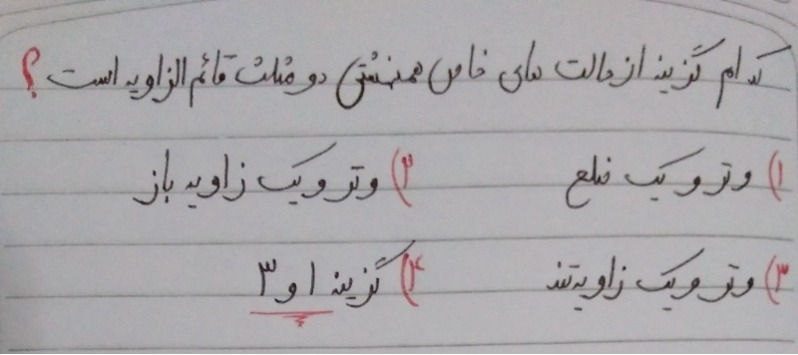 کدام گزینه از حالت های خاص همنهشتی دو مثلث قائم الزاویه است ؟
۱) وتر و یک ضلع ۲) وتر و یک زاویه باز
۳) وتر و یک زاویه تند ۴) گزینه ۱ و ۳